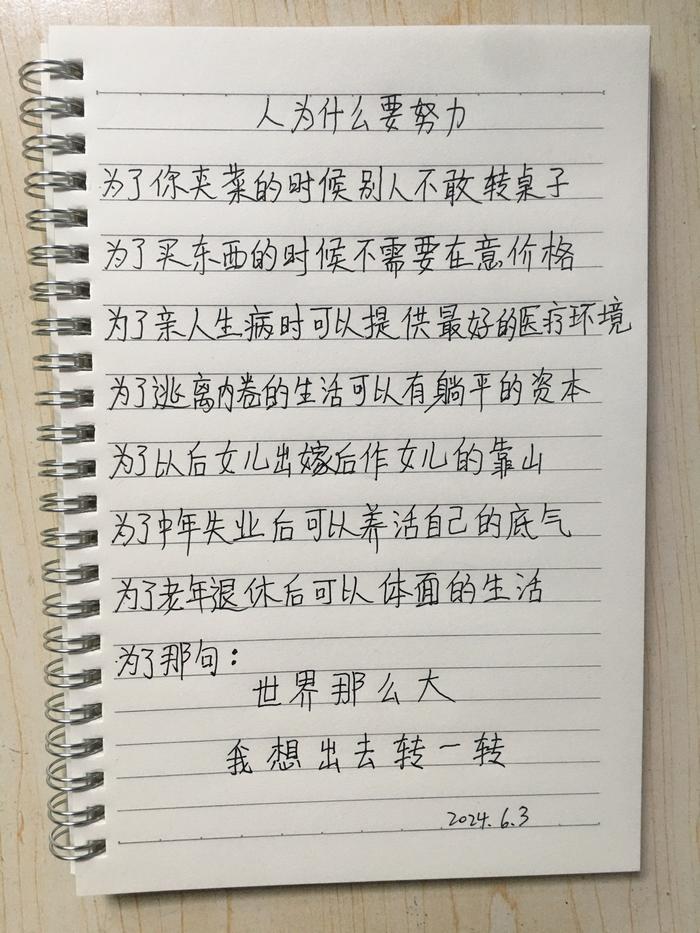 人为什么要努力
为了你夹菜的时候别人不敢转桌子
为了买东西的时候不需要在意价格
为了亲人生病时可以提供最好的医疗环境
为了逃离内卷的生活可以有躺平的资本
为了以后女儿出嫁后作女儿的靠山
为了中年失业后可以养活自己的底气
为了老年退休后可以体面的生活
为了那句：
世界那么大
我想出去转一转
2024.6.3